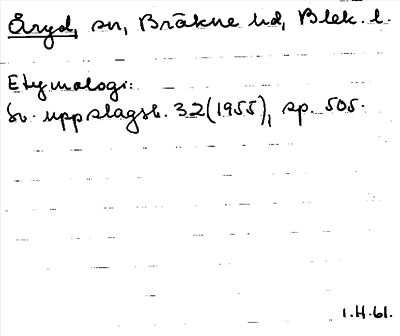 Åryd, sn, Bräkne hd, Blek. l.
Etymologi:
Sv. uppslagsb. 32(1955), sp. 505.
1.H.61.